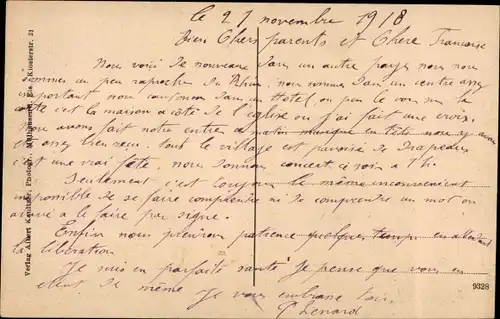 le 21 novembre 1918
Bien Chers parents et Chère Françoise
Nous voici de nouveau dans un autre pays nous nous
sommes un peu raproché du Rhin, nous sommes dans un centre assez
important nous cantonon dans un Hotel, on peu le voir sur la
carte c'est la maison a côté de l'église ou j'ai fait une croix.
Nous avons fait notre entrée ce matin musique en tête nous
tout le village est pavoisé de drapeaux
c'est une vrai fête, nous donnons concert ce soir a 7h.
Seulement c'est toujours le même inconvenient
impossible de se faire comprendre ni de comprendre un mot on
arrive a le faire par signe.
Enfin nous prendron patience quelques temps en attendant
la libération
Je suis en parfaite santé je pense que vous en
etent de même Je vous embrasse tous
Lenard
9328